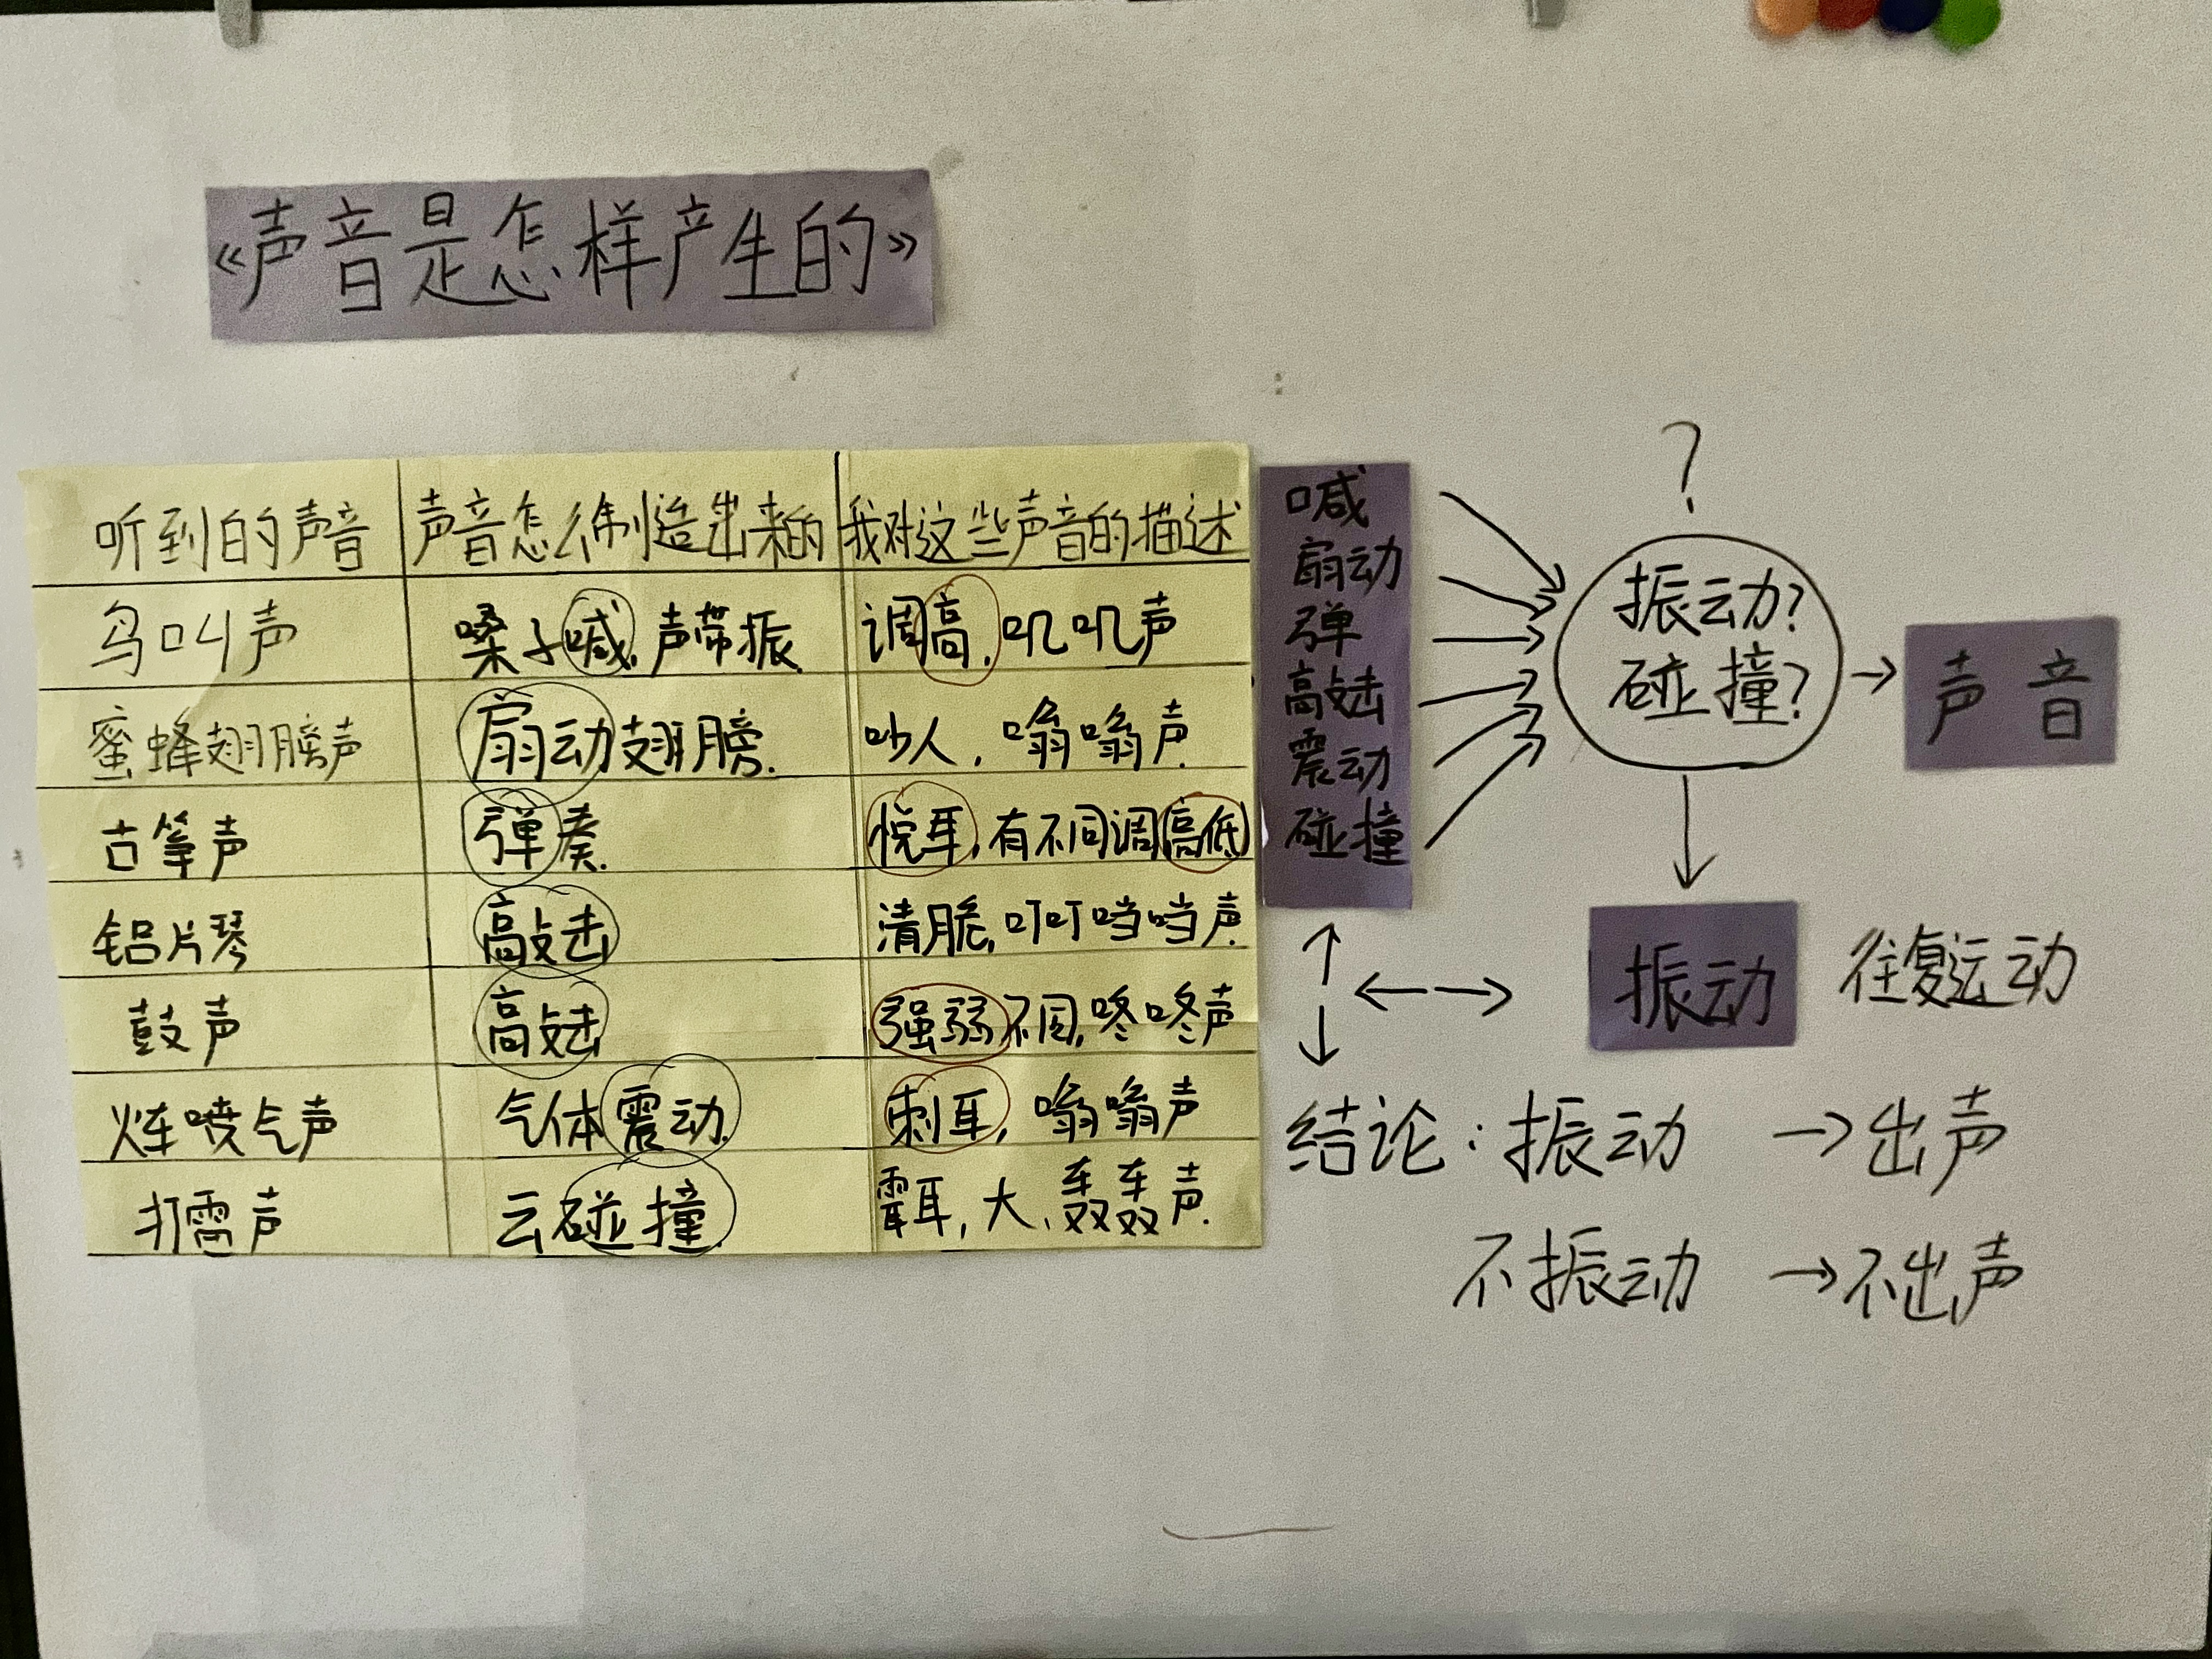 《声音是怎样产生的》
听到的声音 声音怎么制造出来的 我对这些声音的描述
鸟叫声 嗓子喊,声带振 调高,叽叽声
蜜蜂翅膀声 扇动翅膀. 吵人,嗡嗡声.
古筝声 弹奏. 悦耳,有不同调高低
铝片琴 敲击 清脆,叮叮当当声.
鼓声 敲击 强弱不同,咚咚声
火车喷气声 气体震动. 刺耳,嗡嗡声
打雷声 云碰撞. 震耳,大、轰轰声.
喊
扇动
弹
敲击
震动
碰撞
?
振动?
碰撞?
声音
振动 往复运动
结论:振动 →出声
不振动 →不出声